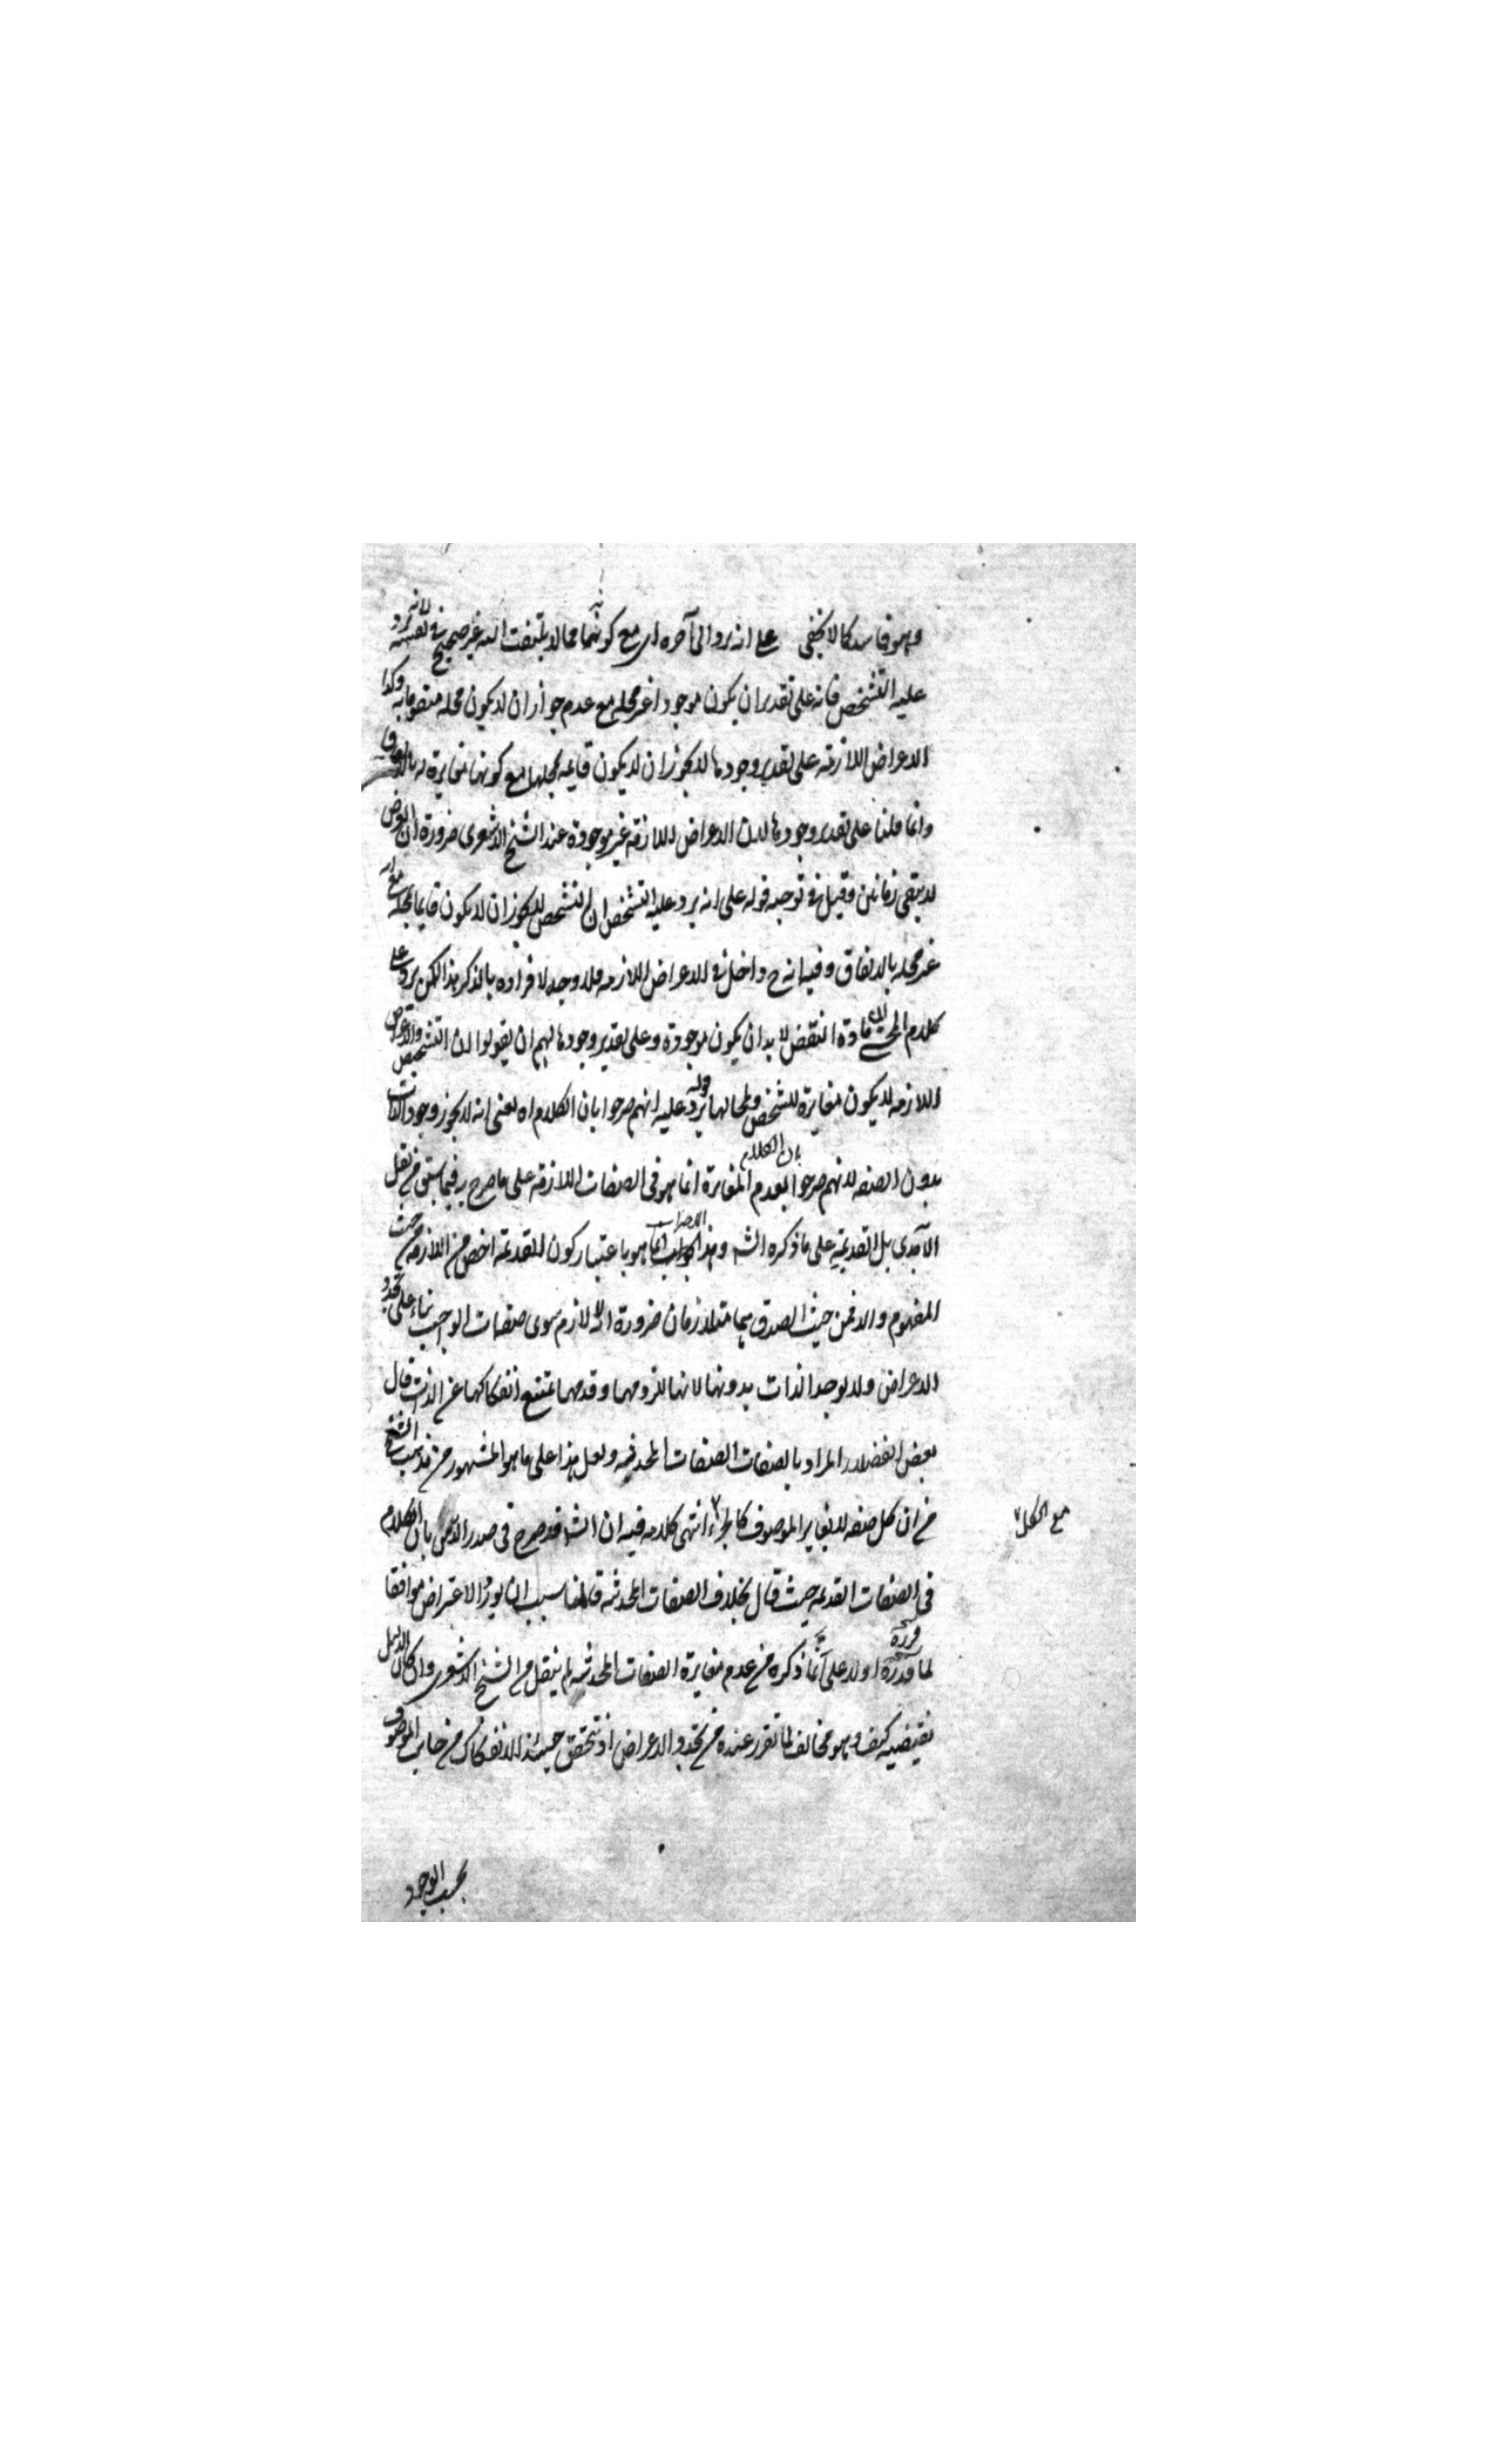 وهو فاسد كما لا يخفى على انه يرد الى آخره اى مع كونهما مما لا يلتفت اليه غير صحيح فى نفسه لانه يرد
عليه التشخص فانه على تقدير ان يكون موجودا غير محله مع عدم جواز ان لا يكون محله متقوما به وكذا
الاعراض اللازمة على تقدير وجودها لا يجوز ان لا يكون قايمة بمحلها مع كونها مغايرة له بالاتفاق
وانما قلنا على تقدير وجودها لان الاعراض اللازمة غير موجودة عند الشيخ الاشعرى ضرورة ان العرض
لا يبقى زمانين وقيل فى توجيه قوله على انه يرد عليه التشخص ان التشخص لا يجوز ان لا يكون قايما بمحله مع انه
غير محله بالاتفاق وفيه انه ح داخل فى الاعراض اللازمة فلا وجه لافراده بالذكر هذا لكن يرد على
كلام المحشى ان مادة النقض لا بد ان يكون موجودة وعلى تقدير وجودها لهم ان يقولوا ان التشخص والاعراض
اللازمة لا يكون مغايرة للشخص ولمحالها قوله يرد عليه انهم صرحوا بان الكلام اه يعنى انه لا يجوز وجود الذات
بدون الصفة لانهم صرحوا بان الكلام بعدم المغايرة انما هو فى الصفات اللازمة على ما صرح به فيما سبق من نقل
الآمدى بل القديمة على ما ذكره الشه وهذا الاضراب انما هو باعتبار كون القديمة اخص من اللازمة من حيث
المفهوم والا فمن حيث الصدق هما متلازمان ضرورة انه لا لازم سوى صفات الواجب بناء على تجدد
الاعراض ولا يوجد الذات بدونها لانها للزومها وقدمها يمتنع انفكاكها عن الذات قال
بعض الفضلاء المراد بالصفات الصفات المحدثة ولعل هذا على ما هو المشهور من مذهب الشيخ
من ان كل صفة لا يغاير الموصوف كالجزء انتهى كلامه فيه ان الشه قد صرح فى صدر الدرس بان الكلام
مع الكل
فى الصفات القديمة حيث قال بخلاف الصفات المحدثة فالمناسب ان يورد الاعتراض موافقا
لما قرره اولا على ان ما ذكره من عدم مغايرة الصفات المحدثة لم ينقل من الشيخ الاشعرى وان كان الدليل
يقتضيه كيف وهو مخالف لما تقرر عنده من تجدد الاعراض اذ يتحقق حينئذ الانفكاك من جانب الموصوف
بحسب الوجود